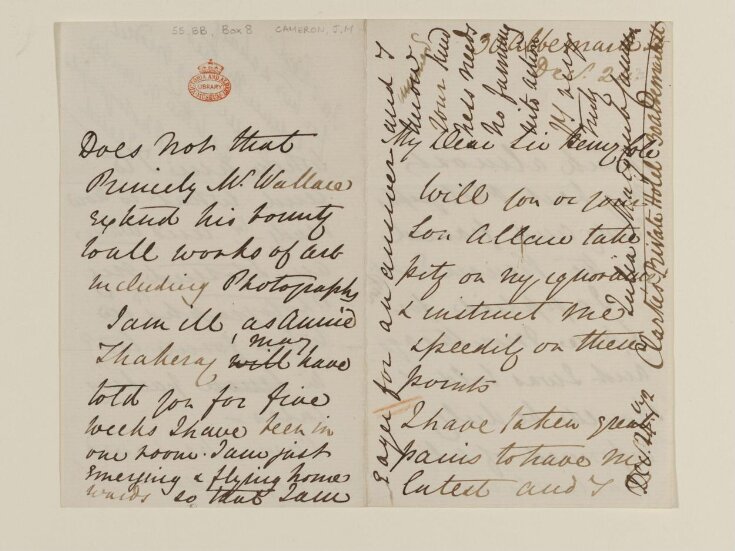 55.BB, Box 8 CAMERON, J.M
VICTORIA AND ALBERT
LIBRARY
MUSEUM
Does not that
Princely Mr. Wallace
Extend his bounty
to all works of art
including Photography
I am ill, as Annie
Thakeray will may have
told you for five
weeks I have been in
one room. I am just
Emerging & flying home
wards so that I am
30 Albemarle
Dec. 2
My Dear Sir Henry Cole
Will you or your
Son Allan take
pity on my ignorance
& instruct me
speedily on these
points
I have taken great
pains to have my
latest and I
Eager for an answer and I
know
Your kind
ness needs
no
its action
Yrs
truly
Julia Margaret Cameron
Clarkes Private Hotel 30 Albemarle St
Dec. 2